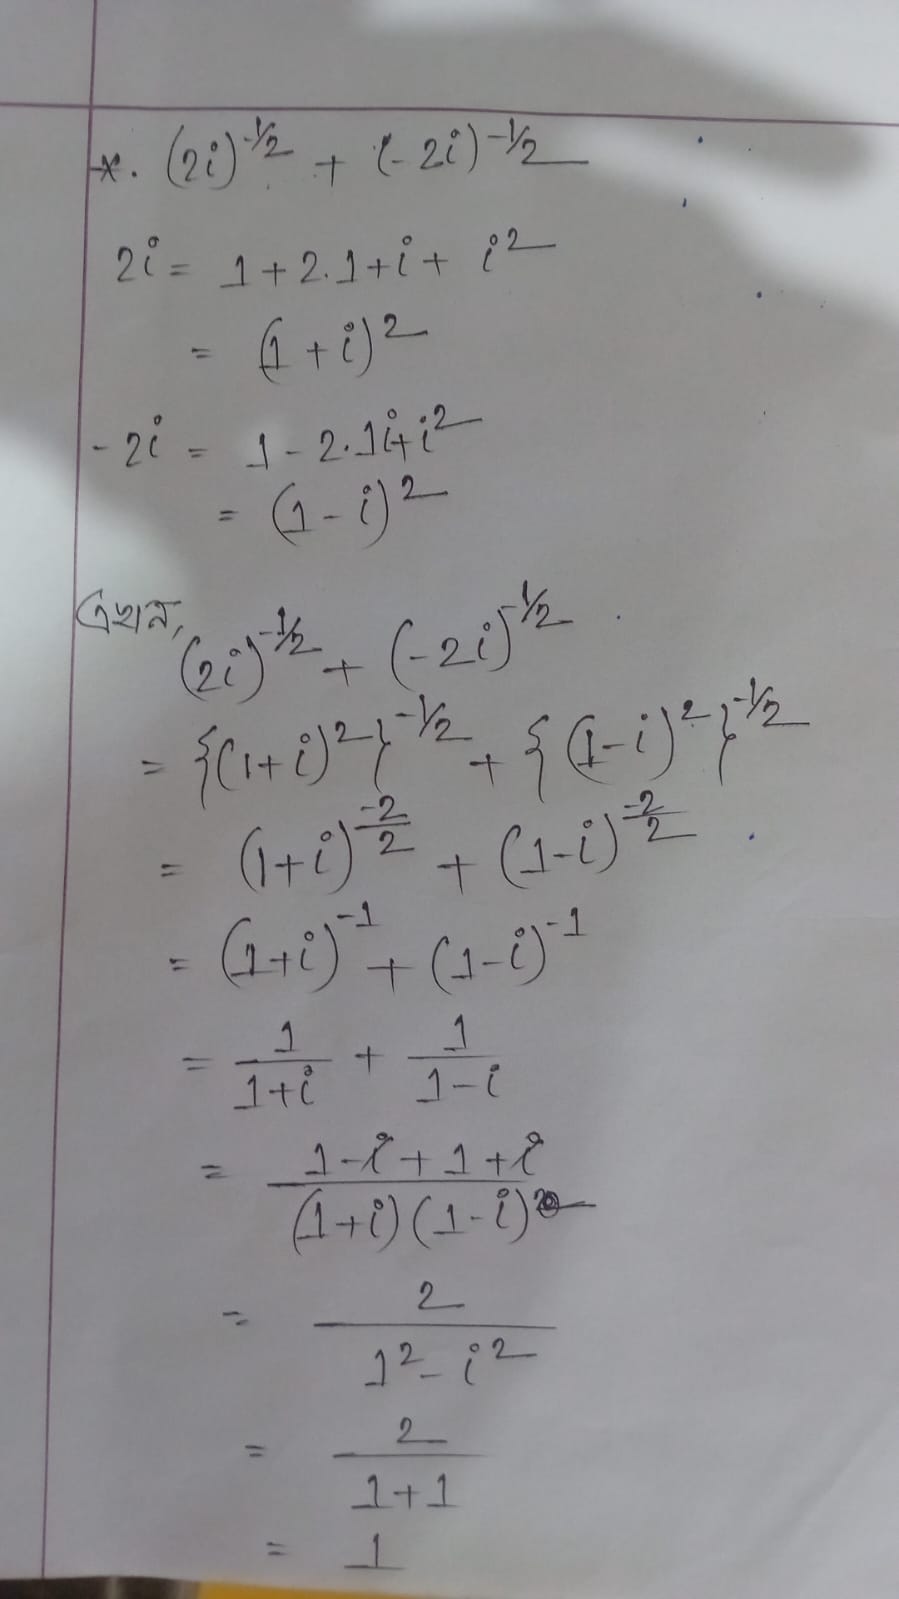 *. (2i)^-1/2 + (-2i)^-1/2
2i = 1+2.1+i+ i^2
= (1+i)^2
-2i = 1-2.1i+i^2
= (1-i)^2
এখন,
(2i)^-1/2 + (-2i)^-1/2
= {(1+i)^2}^-1/2 + {(1-i)^2}^-1/2
= (1+i)^-2/2 + (1-i)^-2/2
= (1+i)^-1 + (1-i)^-1
= 1/(1+i) + 1/(1-i)
= (1-i+1+i)/((1+i)(1-i))
= 2/(1^2-i^2)
= 2/(1+1)
= 1